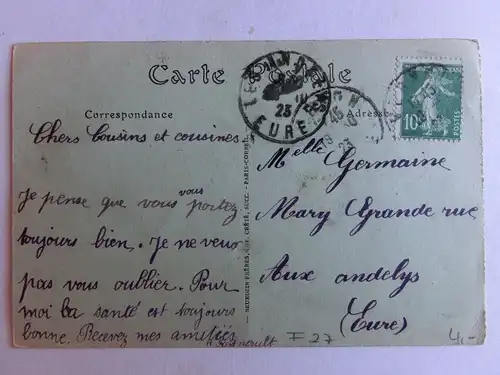 Carte Postale
Correspondance
Adresse
Chers Cousins et cousines
Je pense que vous vous portez
toujours bien. Je ne veux
pas vous oublier. Pour
moi la santé est toujours
bonne. Recevez mes amitiés
Melle Germaine
Mary Grande rue
Aux andelys
(Eure)
F 27
4,-
LES ANDELYS
23
EURE
10
POSTES
NEURDEIN FRÈRES, IMP. CRÉTÉ, SUCC. - PARIS-CORBEIL